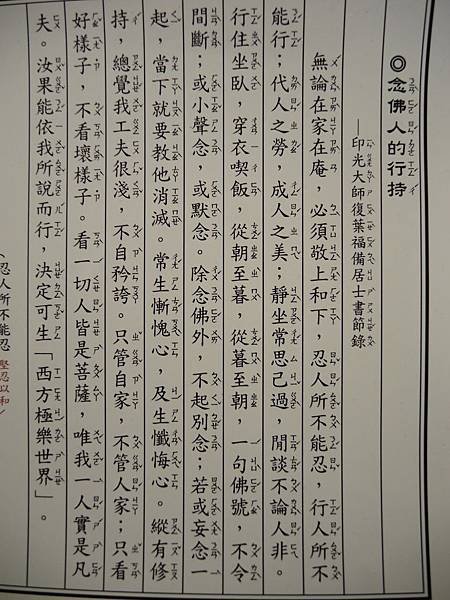 ◎念佛人的行持
—印光大師復葉福備居士書節錄
無論在家在庵，必須敬上和下，忍人所不能忍，行人所不
能行；代人之勞，成人之美；靜坐常思己過，閒談不論人非。
行住坐臥，穿衣喫飯，從朝至暮，從暮至朝，一句佛號，不令
間斷；或小聲念，或默念。除念佛外，不起別念；若或妄念一
起，當下就要教他消滅。常生慚愧心，及生懺悔心。縱有修
持，總覺我工夫很淺，不自矜誇。只管自家，不管人家；只看
好樣子，不看壞樣子。看一切人皆是菩薩，唯我一人實是凡
夫。汝果能依我所說而行，決定可生「西方極樂世界」。
（忍人所不能忍 堅忍以和